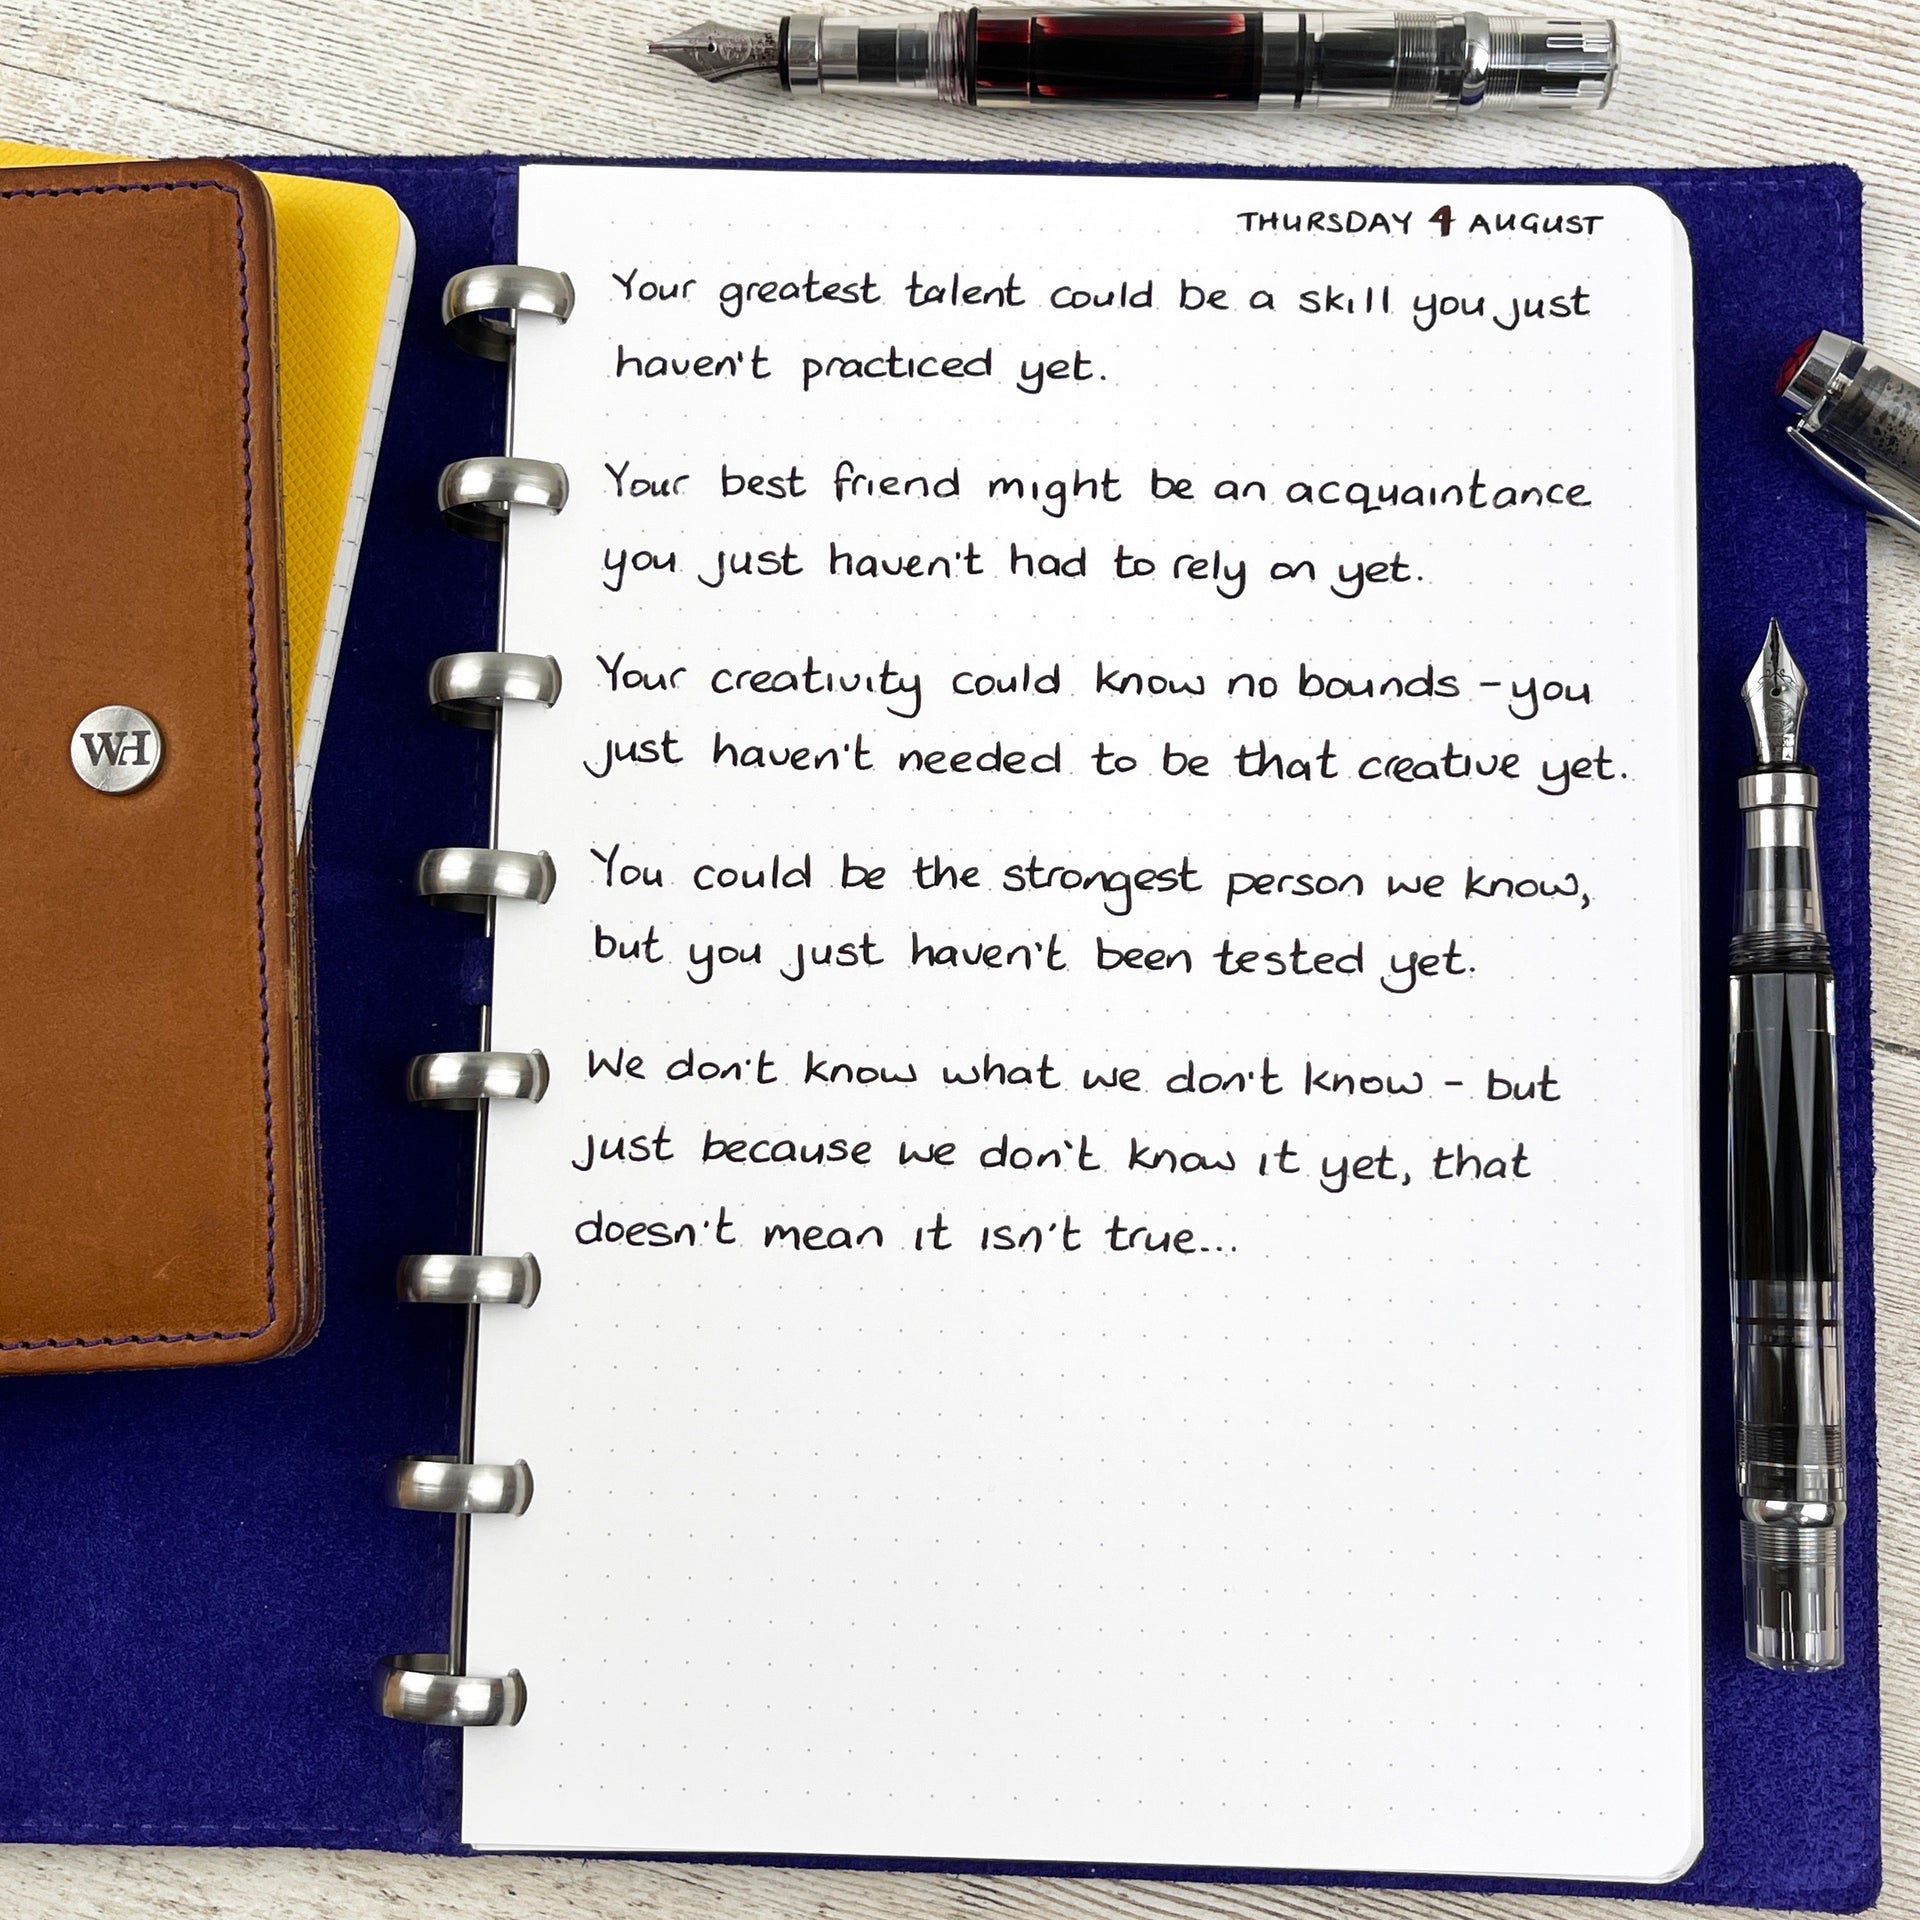 THURSDAY 4 AUGUST
Your greatest talent could be a skill you just
haven't practiced yet.
Your best friend might be an acquaintance
you just haven't had to rely on yet.
Your creativity could know no bounds - you
just haven't needed to be that creative yet.
You could be the strongest person we know,
but you just haven't been tested yet.
We don't know what we don't know - but
just because we don't know it yet, that
doesn't mean it isn't true...
WH